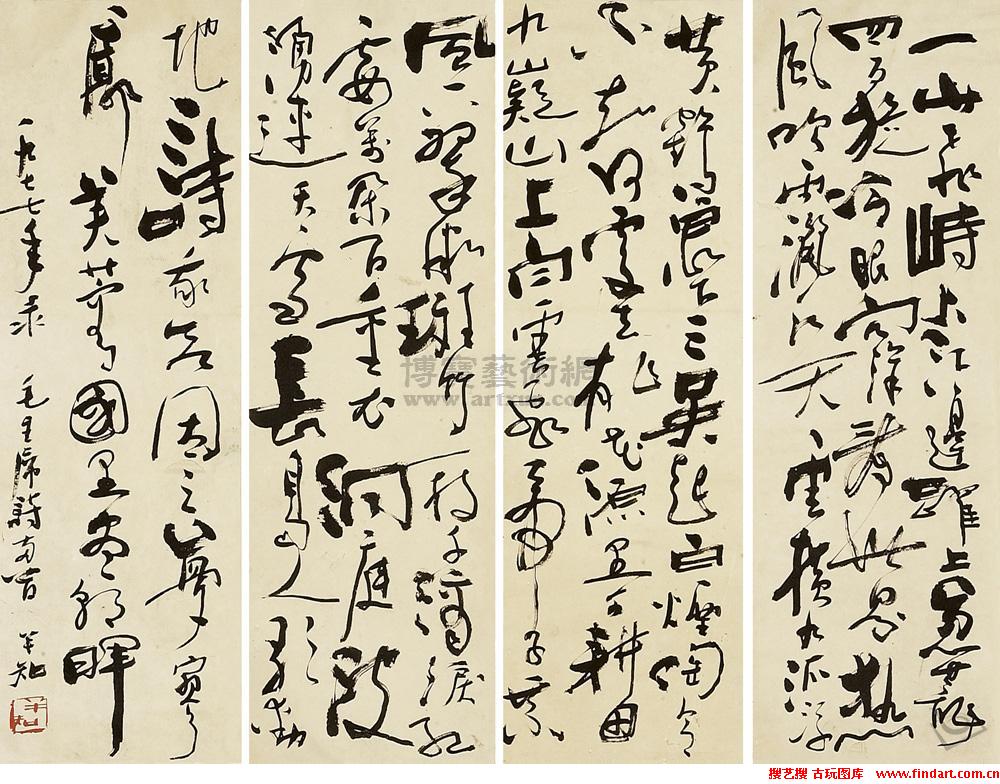 一山飞峙大江邊躍上葱蘢
四百旋冷眼向洋看世界热
風吹雨灑江天雲横九派浮
黄鹤浪下三吴起白烟陶令
不知何處去桃花源里可耕田
九嶷山上白雲飛帝子乘
風下翠微斑竹一枝千滴淚红
霞萬朵百重衣洞庭波
涌連天雪長島人歌動
地詩我欲因之夢寥
廓芙蓉國里尽朝暉
一九七七年录 毛主席詩两首 半知
半知
博寶藝術網
www.artxun.com
搜艺搜 古玩图库 www.findart.com.cn